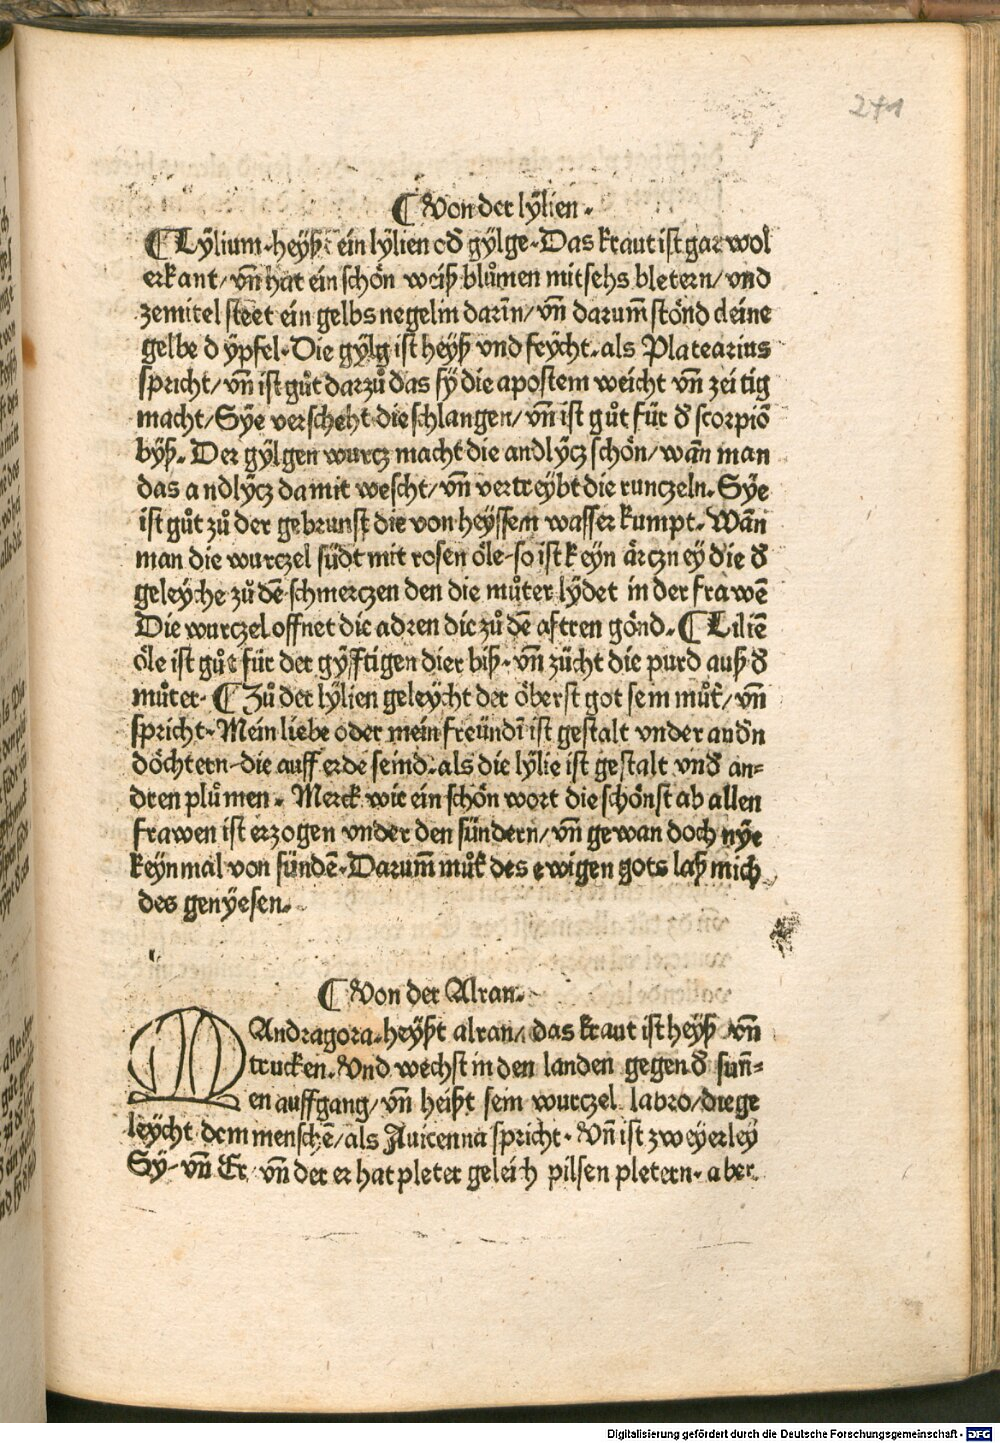 241
¶ Von der lÿlien.
¶ Lÿlium. heÿßt ein lÿlien od̄ gÿlge. Das kraut ist gar wol
erkant/ vn̄ hat ein schön weiß blůmen mit sehs bletern/ vnd
zemitel steet ein gelbs negelin darin̄/ vn̄ darum̄ stönd cleine
gelbe dÿpfel. Die gÿlg ist heÿß vnd feÿcht. als Platearius
spricht/ vn̄ ist gůt darzů das sÿ die apostem weicht vn̄ zeitig
macht/ Sÿe verscheht die schlangen/ vn̄ ist gůt für d̄ scorpiō
bÿß. Der gÿlgen wurcz macht die andlÿcz schön/ wān man
das andlÿcz damit wescht/ vn̄ vertreÿbt die runczeln. Sÿe
ist gůt zů der gebrunst die von heÿssem wasser kumpt. Wān
man die wurczel südt mit rosen öle. so ist keyn ärczney die d̄
geleÿche zů dē schmerczen den die můter lÿdet in der frawē
Die wurczel offnet die adren die zů dē aftren gönd. ¶ Liliē
öle ist gůt für der gÿfftigen dier biß. vn̄ zücht die purd auß d̄
můter. ¶ Zů der lÿlien geleÿcht der öberst got sein můt̄/ vn̄
spricht. Mein liebe oder mein freündī ist gestalt vnder and̄n
döchtern. die auff erde seind. als die lÿlie ist gestalt vnd̄ an=
dren plůmen. Merck wie ein schön wort die schönst ab allen
frawen ist erzogen vnder den sündern/ vn̄ gewan doch nÿe
keÿn mal von sündē. Darum̄ můt̄ des ewigen gots laß mich
des genÿesen.
¶ Von der Alran.
MAndragora. heÿßt alran/ das kraut ist heÿß vn̄
trucken. Vnd wechst in den landen gegen d̄ sun̄=
en auffgang/ vn̄ heißt sein wurczel labro/ die ge
leÿcht dem menschē/ als Auicenna spricht. Vn̄ ist zweÿerleÿ
Sy. vn̄ Er. vn̄ der er hat pleter geleich pilsen pletern. aber
Digitalisierung gefördert durch die Deutsche Forschungsgemeinschaft - DFG